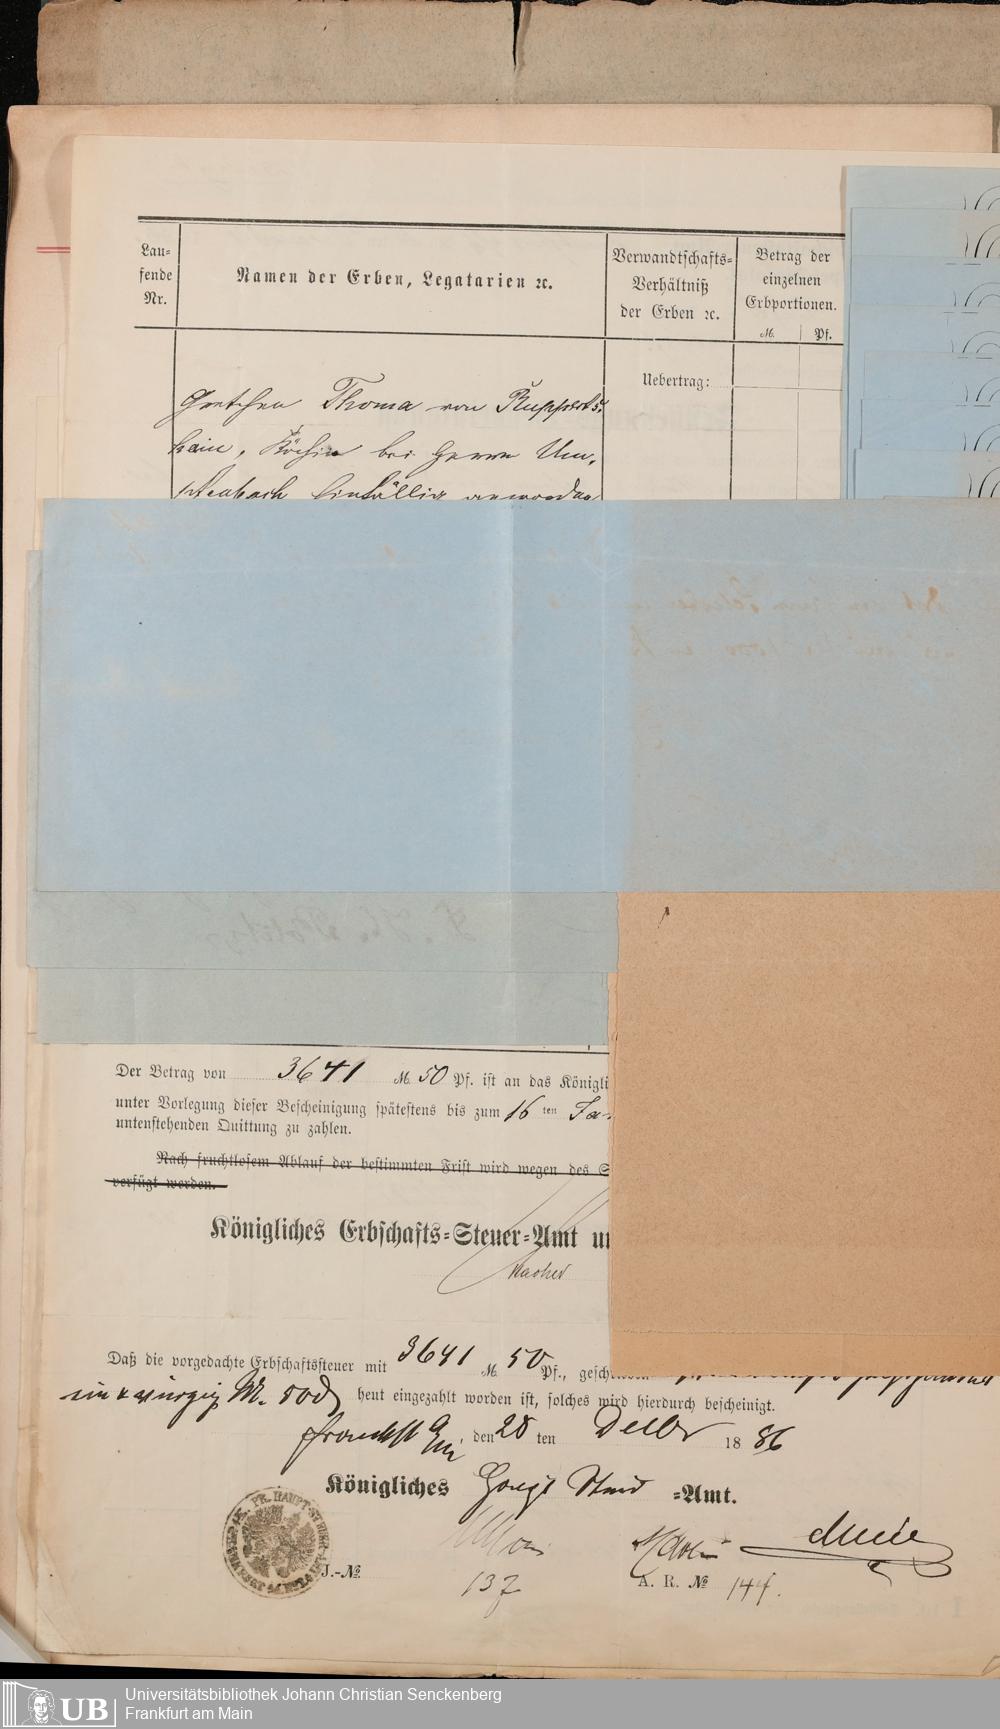 Lau=
fende
Nr.
Namen der Erben, Legatarien ꝛc.
Verwandtschafts=
Verhältniß
der Erben ꝛc.
Betrag der
einzelnen
Erbportionen.
M. Pf.
Uebertrag:
Gretchen Thoma von Rupperts-
hain, Köchin bei Herrn Um-
Der Betrag von 3641 M. 50 Pf. ist an das Königli
unter Vorlegung dieser Bescheinigung spätestens bis zum 16 ten Ja
untenstehenden Quittung zu zahlen.
Nach fruchtlosem Ablauf der bestimmten Frist wird wegen des S
verfügt werden.
Königliches Erbschafts=Steuer=Amt un
Daß die vorgedachte Erbschaftssteuer mit 3641 M. 50 Pf., geschrieben
M. 50 heut eingezahlt worden ist, solches wird hierdurch bescheinigt.
den 28 ten Decbr 18 86
Königliches Haupt Steuer =Amt.
J.-№
137
A. R. № 144.
UB
Universitätsbibliothek Johann Christian Senckenberg
Frankfurt am Main